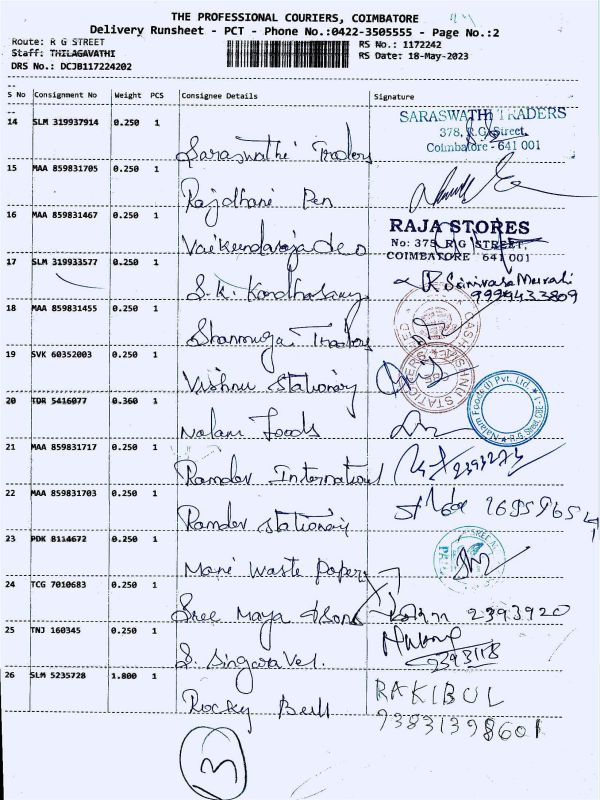 THE PROFESSIONAL COURIERS, COIMBATORE
Delivery Runsheet - PCT - Phone No.:0422-3505555 - Page No.:2
Route: R G STREET
RS No.: 1172242
Staff: THILAGAVATHI
RS Date: 18-May-2023
DRS No.: DCJB117224202
S No Consignment No Weight PCS Consignee Details Signature
14 SLM 319937914 0.250 1 Saraswathi Traders
SARASWATHI TRADERS
378, R.G. Street,
Coimbatore - 641 001
15 MAA 859831705 0.250 1 Rajdhani Pen
16 MAA 859831467 0.250 1 Vaikundaraja deo
RAJA STORES
No: 375, R G STREET,
COIMBATORE 641 001
17 SLM 319933577 0.250 1 S.K. Kandhasamy
R Srinivasa Murali
9994433809
18 MAA 859831455 0.250 1 Shanmuga Traders
19 SVK 60352003 0.250 1 Vishnu Stationary
20 TDR 5416077 0.360 1 Nalam Foods
Nalam Foods (I) Pvt. Ltd.
R.G. Street, CBE-1
21 MAA 859831717 0.250 1 Ramdev International
2393273
22 MAA 859831703 0.250 1 Ramdev Stationary
23 PDK 8114672 0.250 1 Mani Waste Paper
24 TCG 7010683 0.250 1 Sree Maya &Sons
2393920
25 TNJ 160345 0.250 1 S. Singaravel.
2393118
26 SLM 5235728 1.800 1 Rocky Bell
RAKIBUL
93831398601
13